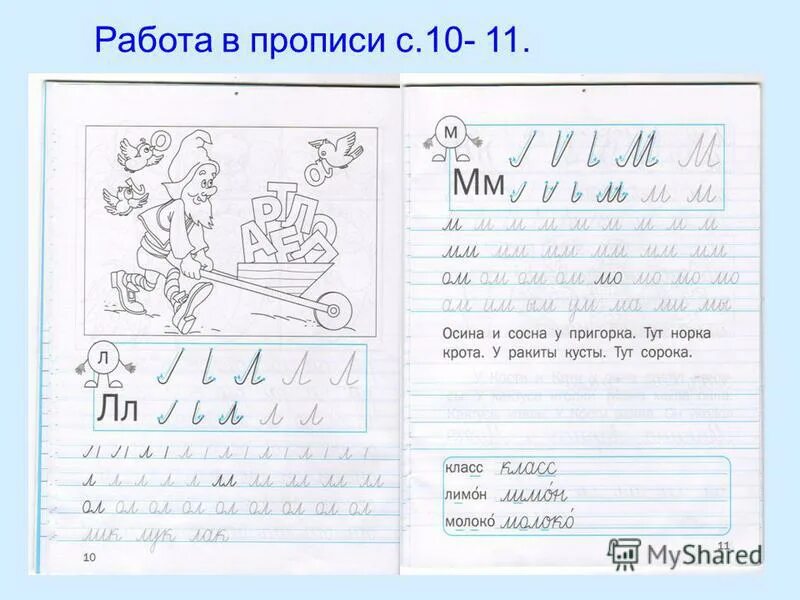 Работа в прописи с.10- 11.
О
О
А Р Т Л О Е Я
л
Л Л
Лл л л л
л л л л л л л л л
л л л л л лл лл лл лл лл
ол ол ол ол ол ол ол ол ол ол
лик лук лак
10
м
М М
Мм м м м
м м м м м м м м м
мм мм мм мм мм мм
ом ом ом ом мо мо мо мо
ом им ым ум ма ми мы
Осина и сосна у пригорка. Тут норка
крота. У ракиты кусты. Тут сорока.
класс класс
лимо́н лимо́н
молоко́ молоко́
11
MyShared